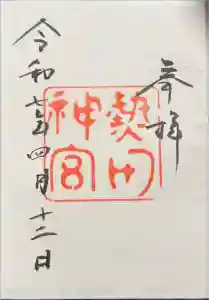 奉拝
熱田
神宮
令和七年四月十二日